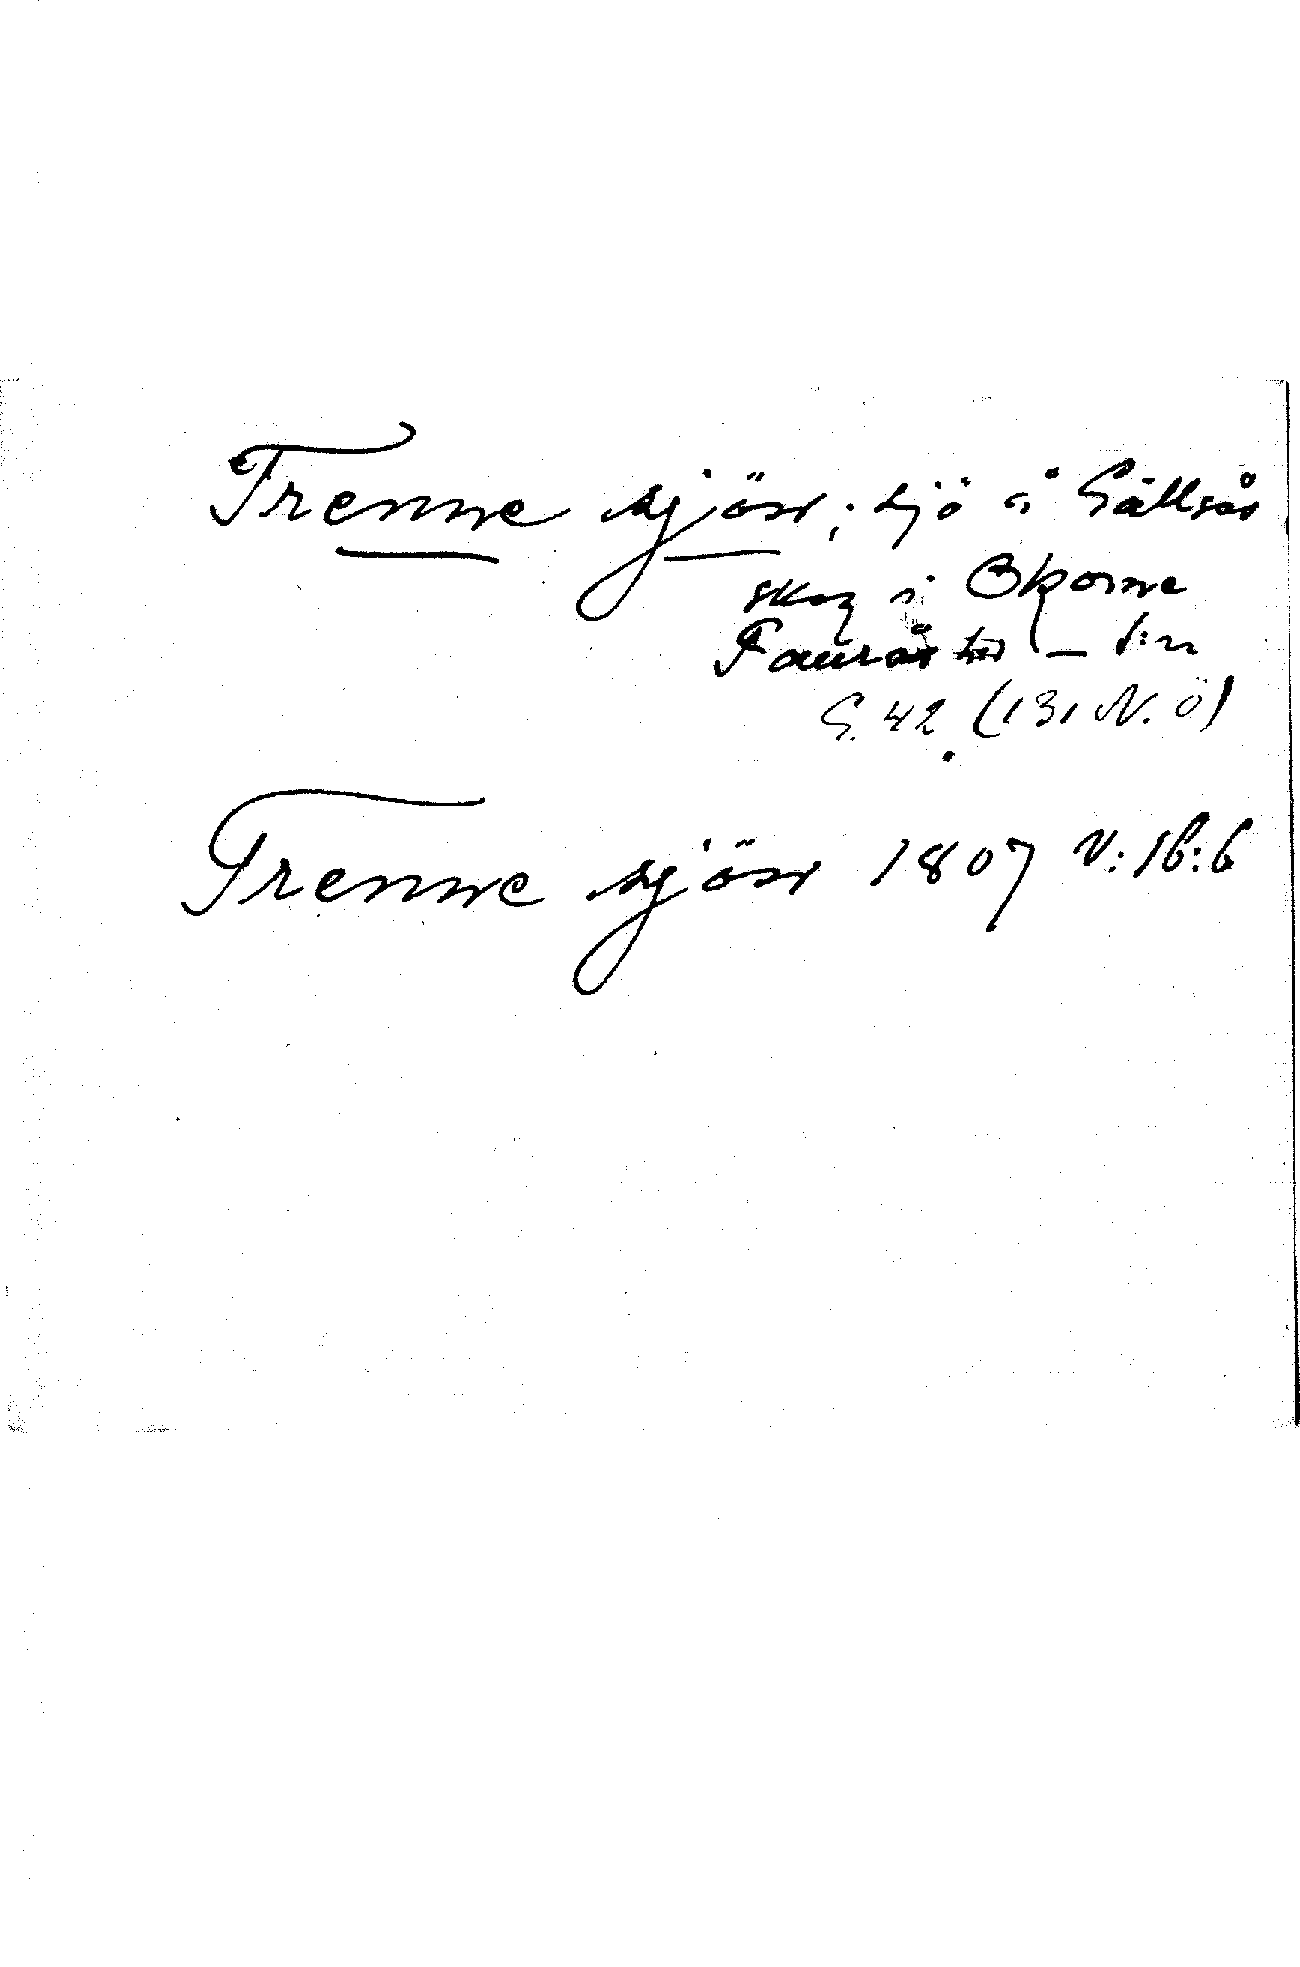 Trenne sjöar; sjö å Gällsås
skog i Okome
Faurås hd – l:n
G. 42 (131 N. Ö)
Trenne sjöar 1807 V:16:6